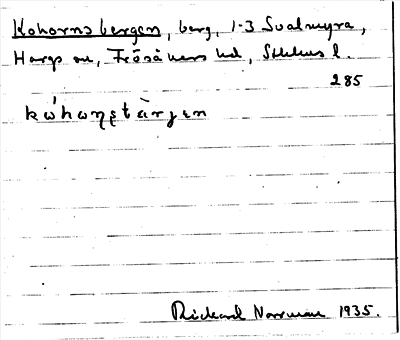 Kohornsbergen, berg, 1-3 Svalmyra,
Hargs sn, Frösåkers hd, Sthlms l.
285
kóhon̥stàrjen
Rickard Norrman 1935.